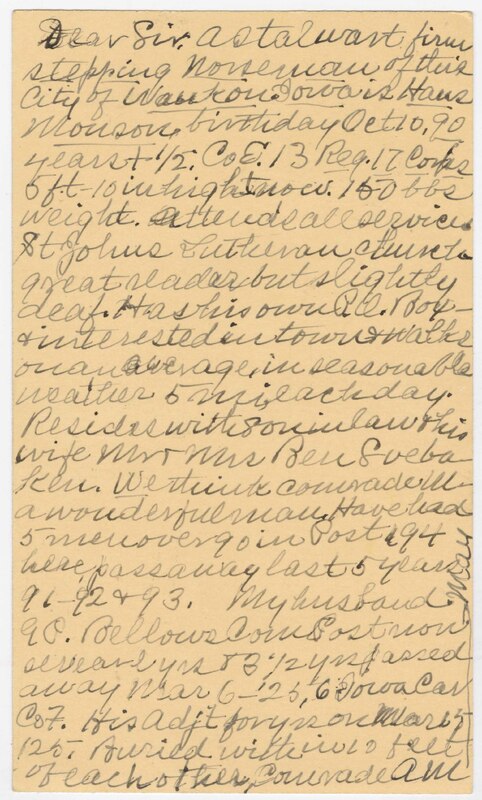 Dear Sir. A stalwart, firm
stepping Norseman of this
City of Waukon, Iowa is Hans
Monson, birthday Oct 10, 90
years + 1/2. Co E. 13 Reg. 17 Corps
5 ft - 10 in high now. 150 lbs
weight. attends all services
St Johns Lutheran church
great reader but slightly
deaf. Has his own P.O. Box -
& interested in town & walks
on an average, in seasonable
weather 5 mi, each day.
Resides with son in law & his
wife Mr & Mrs Ben Sveba
ken. We think comrade M -
a wonderful man, Have had
5 men over 90 in Post 194
here, pass away last 5 years
91 - 92 & 93. My husband
Bellows Com Post now
several yrs & 3 1/2 yrs passed
away Mar 6 - 25, 6 Iowa Cav
Co F. His Adjt for yrs on Mar 15
125. Buried within 10 feet
of each other, Comrade A M
May